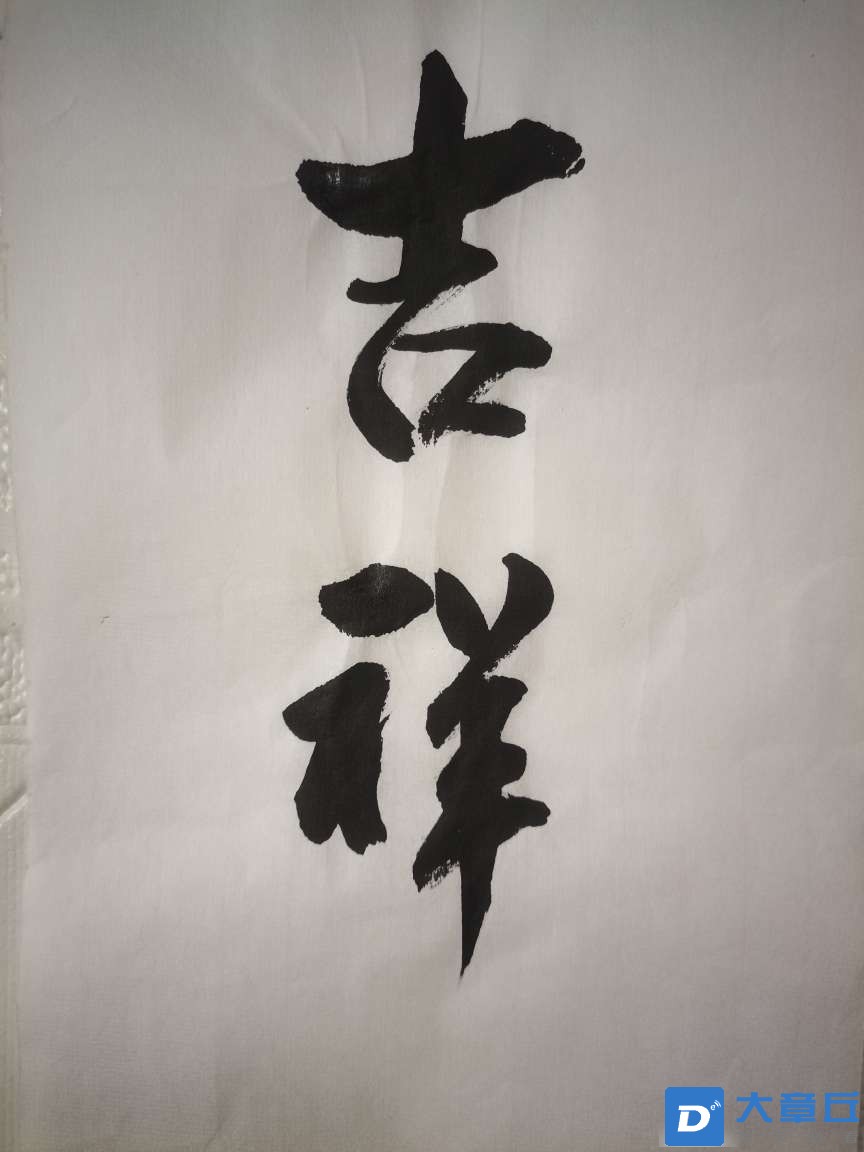 吉祥
D
大章丘